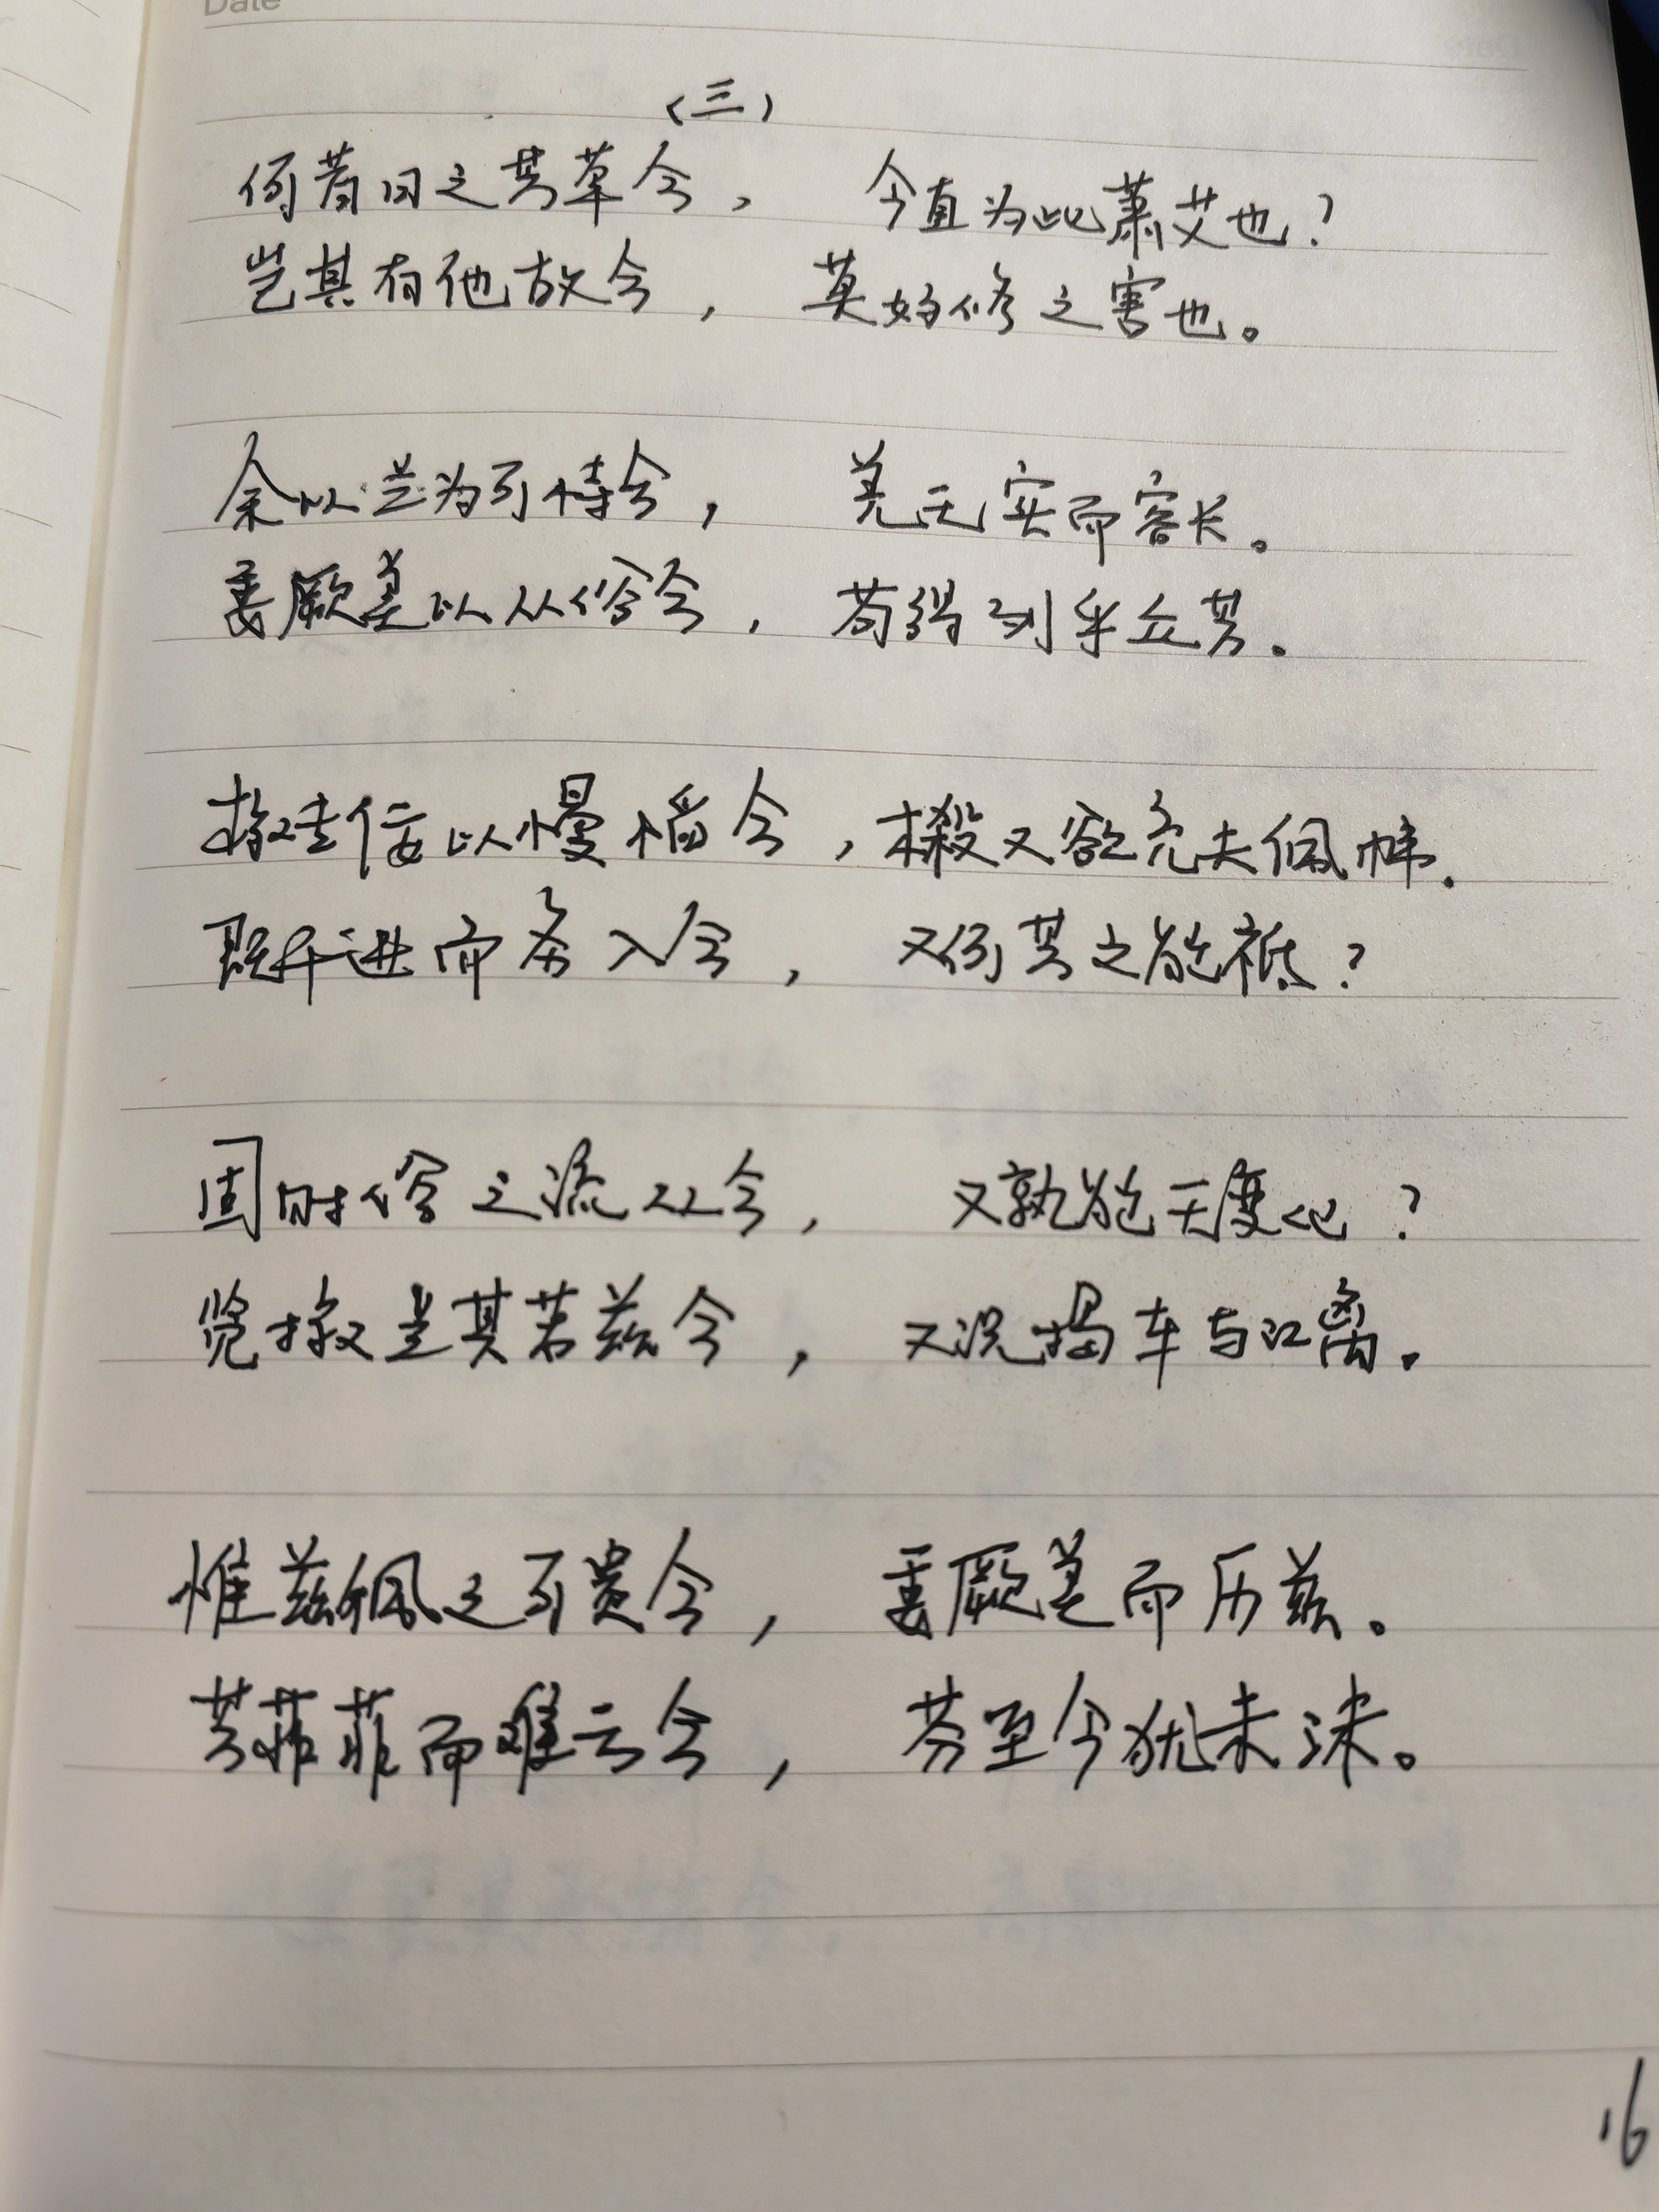 Date
（三）
何昔日之芳草兮， 今直为此萧艾也？
岂其有他故兮， 莫好修之害也。
余以兰为可恃兮， 羌无实而容长。
委厥美以从俗兮， 苟得列乎众芳。
椒专佞以慢慆兮，榝又欲充夫佩帏。
既干进而务入兮， 又何芳之能祗？
固时俗之流从兮， 又孰能无变化？
览椒兰其若兹兮， 又况揭车与江离。
惟兹佩之可贵兮， 委厥美而历兹。
芳菲菲而难亏兮， 芬至今犹未沬。
16